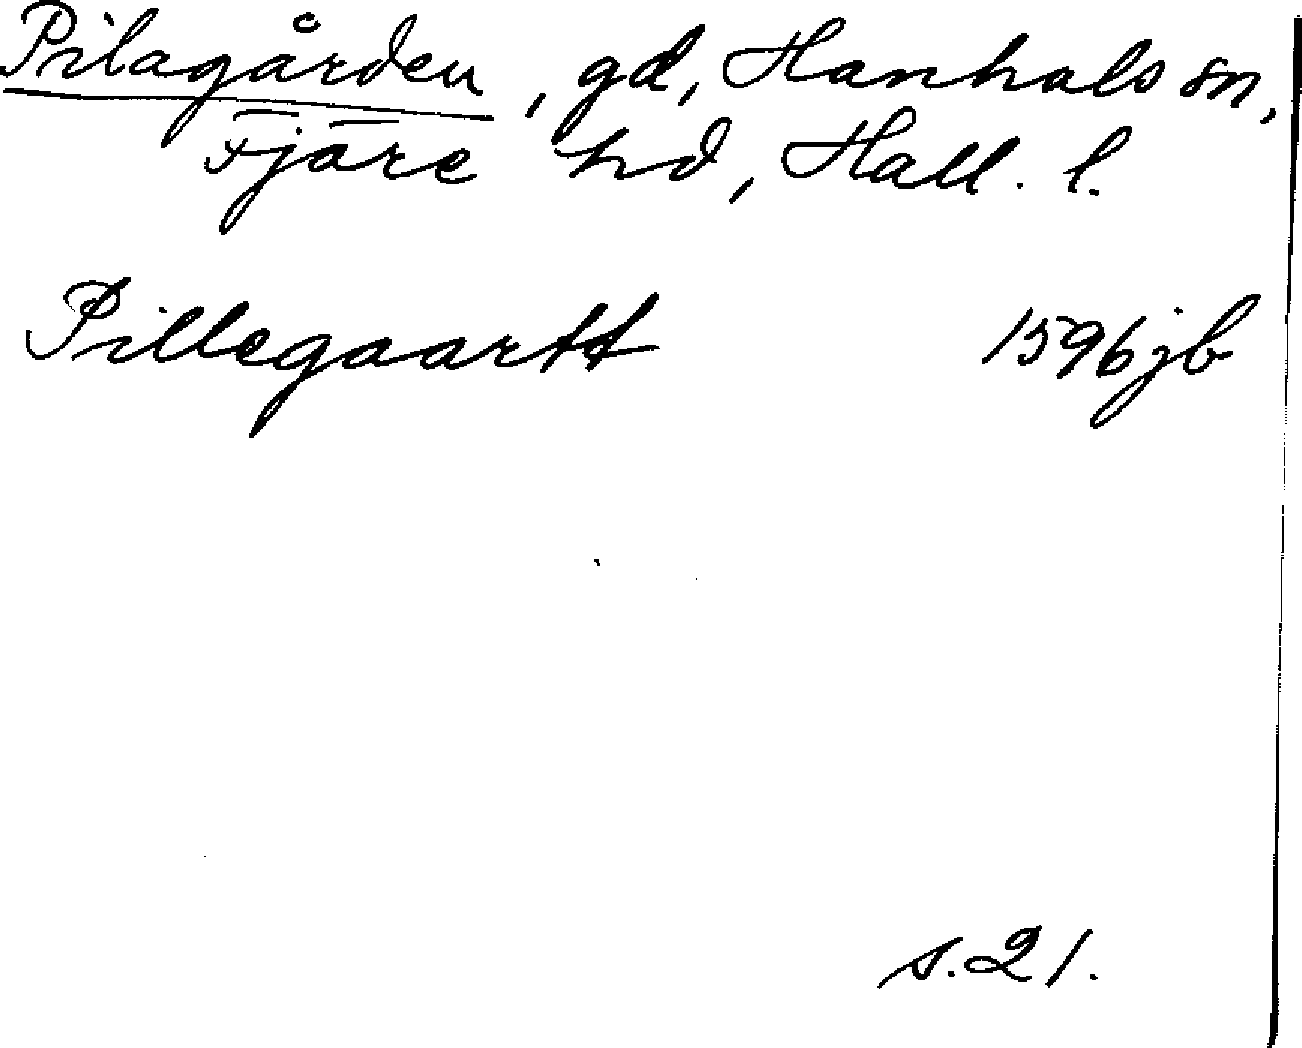 Pilagården, gd, Hanhals sn,
Fjäre hd, Hall. l.
Pillegaartt 1596 jb
s. 21.